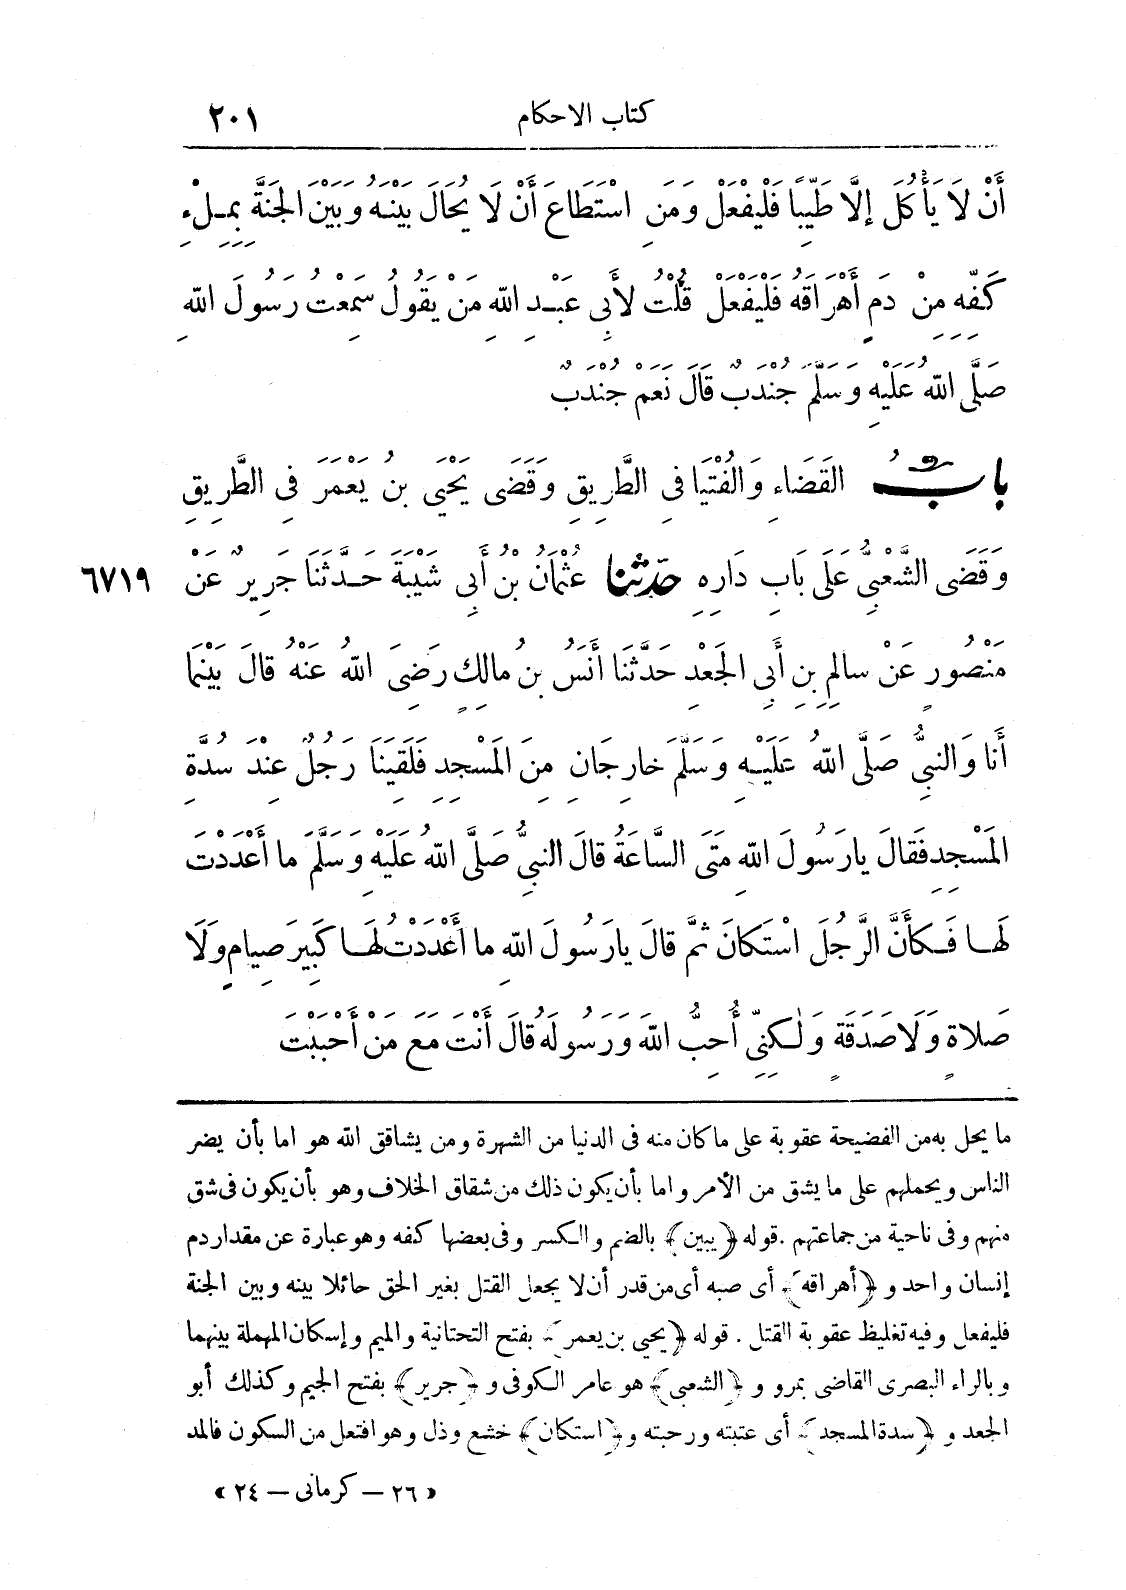 كتاب الاحكام ٢٠١
أَنْ لَا يَأْكُلَ إِلَّا طَيِّبًا فَلْيَفْعَلْ وَمَنِ اسْتَطَاعَ أَنْ لَا يُحَالَ بَيْنَهُ وَبَيْنَ الْجَنَّةِ بِمِلْءِ
كَفِّهِ مِنْ دَمٍ أَهْرَاقَهُ فَلْيَفْعَلْ قُلْتُ لِأَبِي عَبْدِ اللهِ مَنْ يَقُولُ سَمِعْتُ رَسُولَ اللهِ
صَلَّى اللهُ عَلَيْهِ وَسَلَّمَ جُنْدَبٌ قَالَ نَعَمْ جُنْدَبٌ
بابُ القَضَاءِ وَالْفُتْيَا فِى الطَّرِيقِ وَقَضَى يَحْيَى بنُ يَعْمَرَ فِى الطَّرِيقِ
وَقَضَى الشَّعْبِىُّ عَلَى بَابِ دَارِهِ حدثنا عُثْمَانُ بنُ أَبِى شَيْبَةَ حَدَّثَنَا جَرِيرٌ عَنْ ٦٧١٩
مَنْصُورٍ عَنْ سالِمِ بنِ أَبِى الْجَعْدِ حَدَّثَنَا أَنَسُ بنُ مالِكٍ رَضِىَ اللهُ عَنْهُ قَالَ بَيْنَمَا
أَنا وَالنبىُّ صَلَّى اللهُ عَلَيْهِ وَسَلَّمَ خارِجَانِ مِنَ الْمَسْجِدِ فَلَقِيَنَا رَجُلٌ عِنْدَ سُدَّةِ
الْمَسْجِدِ فَقالَ يارَسُولَ اللهِ مَتَى السَّاعَةُ قالَ النبىُّ صَلَّى اللهُ عَلَيْهِ وَسَلَّمَ ما أَعْدَدْتَ
لَها فَكأَنَّ الرَّجُلَ اسْتَكانَ ثُمَّ قالَ يارَسُولَ اللهِ ما أَعْدَدْتُ لَها كَبِيرَ صِيامٍ وَلَا
صَلاةٍ وَلَا صَدَقَةٍ وَلٰكِنِّى أُحِبُّ اللهَ وَرَسُولَهُ قالَ أَنْتَ مَعَ مَنْ أَحْبَبْتَ
ما يحل به من الفضيحة عقوبة على ما كان منه فى الدنيا من الشهرة ومن يشاقق الله هو اما بأن يضر
الناس ويحملهم على ما يشق من الأمر واما بأن يكون ذلك من شقاق الخلاف وهو بأن يكون فى شق
منهم وفى ناحية من جماعتهم . قوله ﴿يبين﴾ بالضم والكسر وفى بعضها كفه وهو عبارة عن مقدار دم
إنسان واحد و ﴿أهراقه﴾ أى صبه أى من قدر أن لا يجعل القتل بغير الحق حائلا بينه وبين الجنة
فليفعل وفيه تغليظ عقوبة القتل . قوله ﴿يحيي بن يعمر﴾ بفتح التحتانية والميم وإسكان المهملة بينهما
وبالراء البصرى القاضى بمرو و ﴿الشعبى﴾ هو عامر الكوفى و ﴿جرير﴾ بفتح الجيم وكذلك أبو
الجعد و ﴿سدة المسجد﴾ أى عتبته ورحبته و ﴿استكان﴾ خشع وذل وهو افتعل من السكون فالمد
« ٢٦ – كرمانى – ٢٤ »